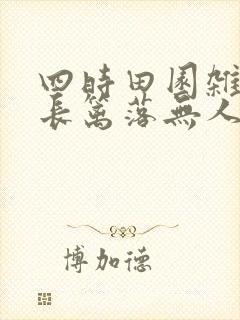 四時田園雜
長篱落無人
博加德